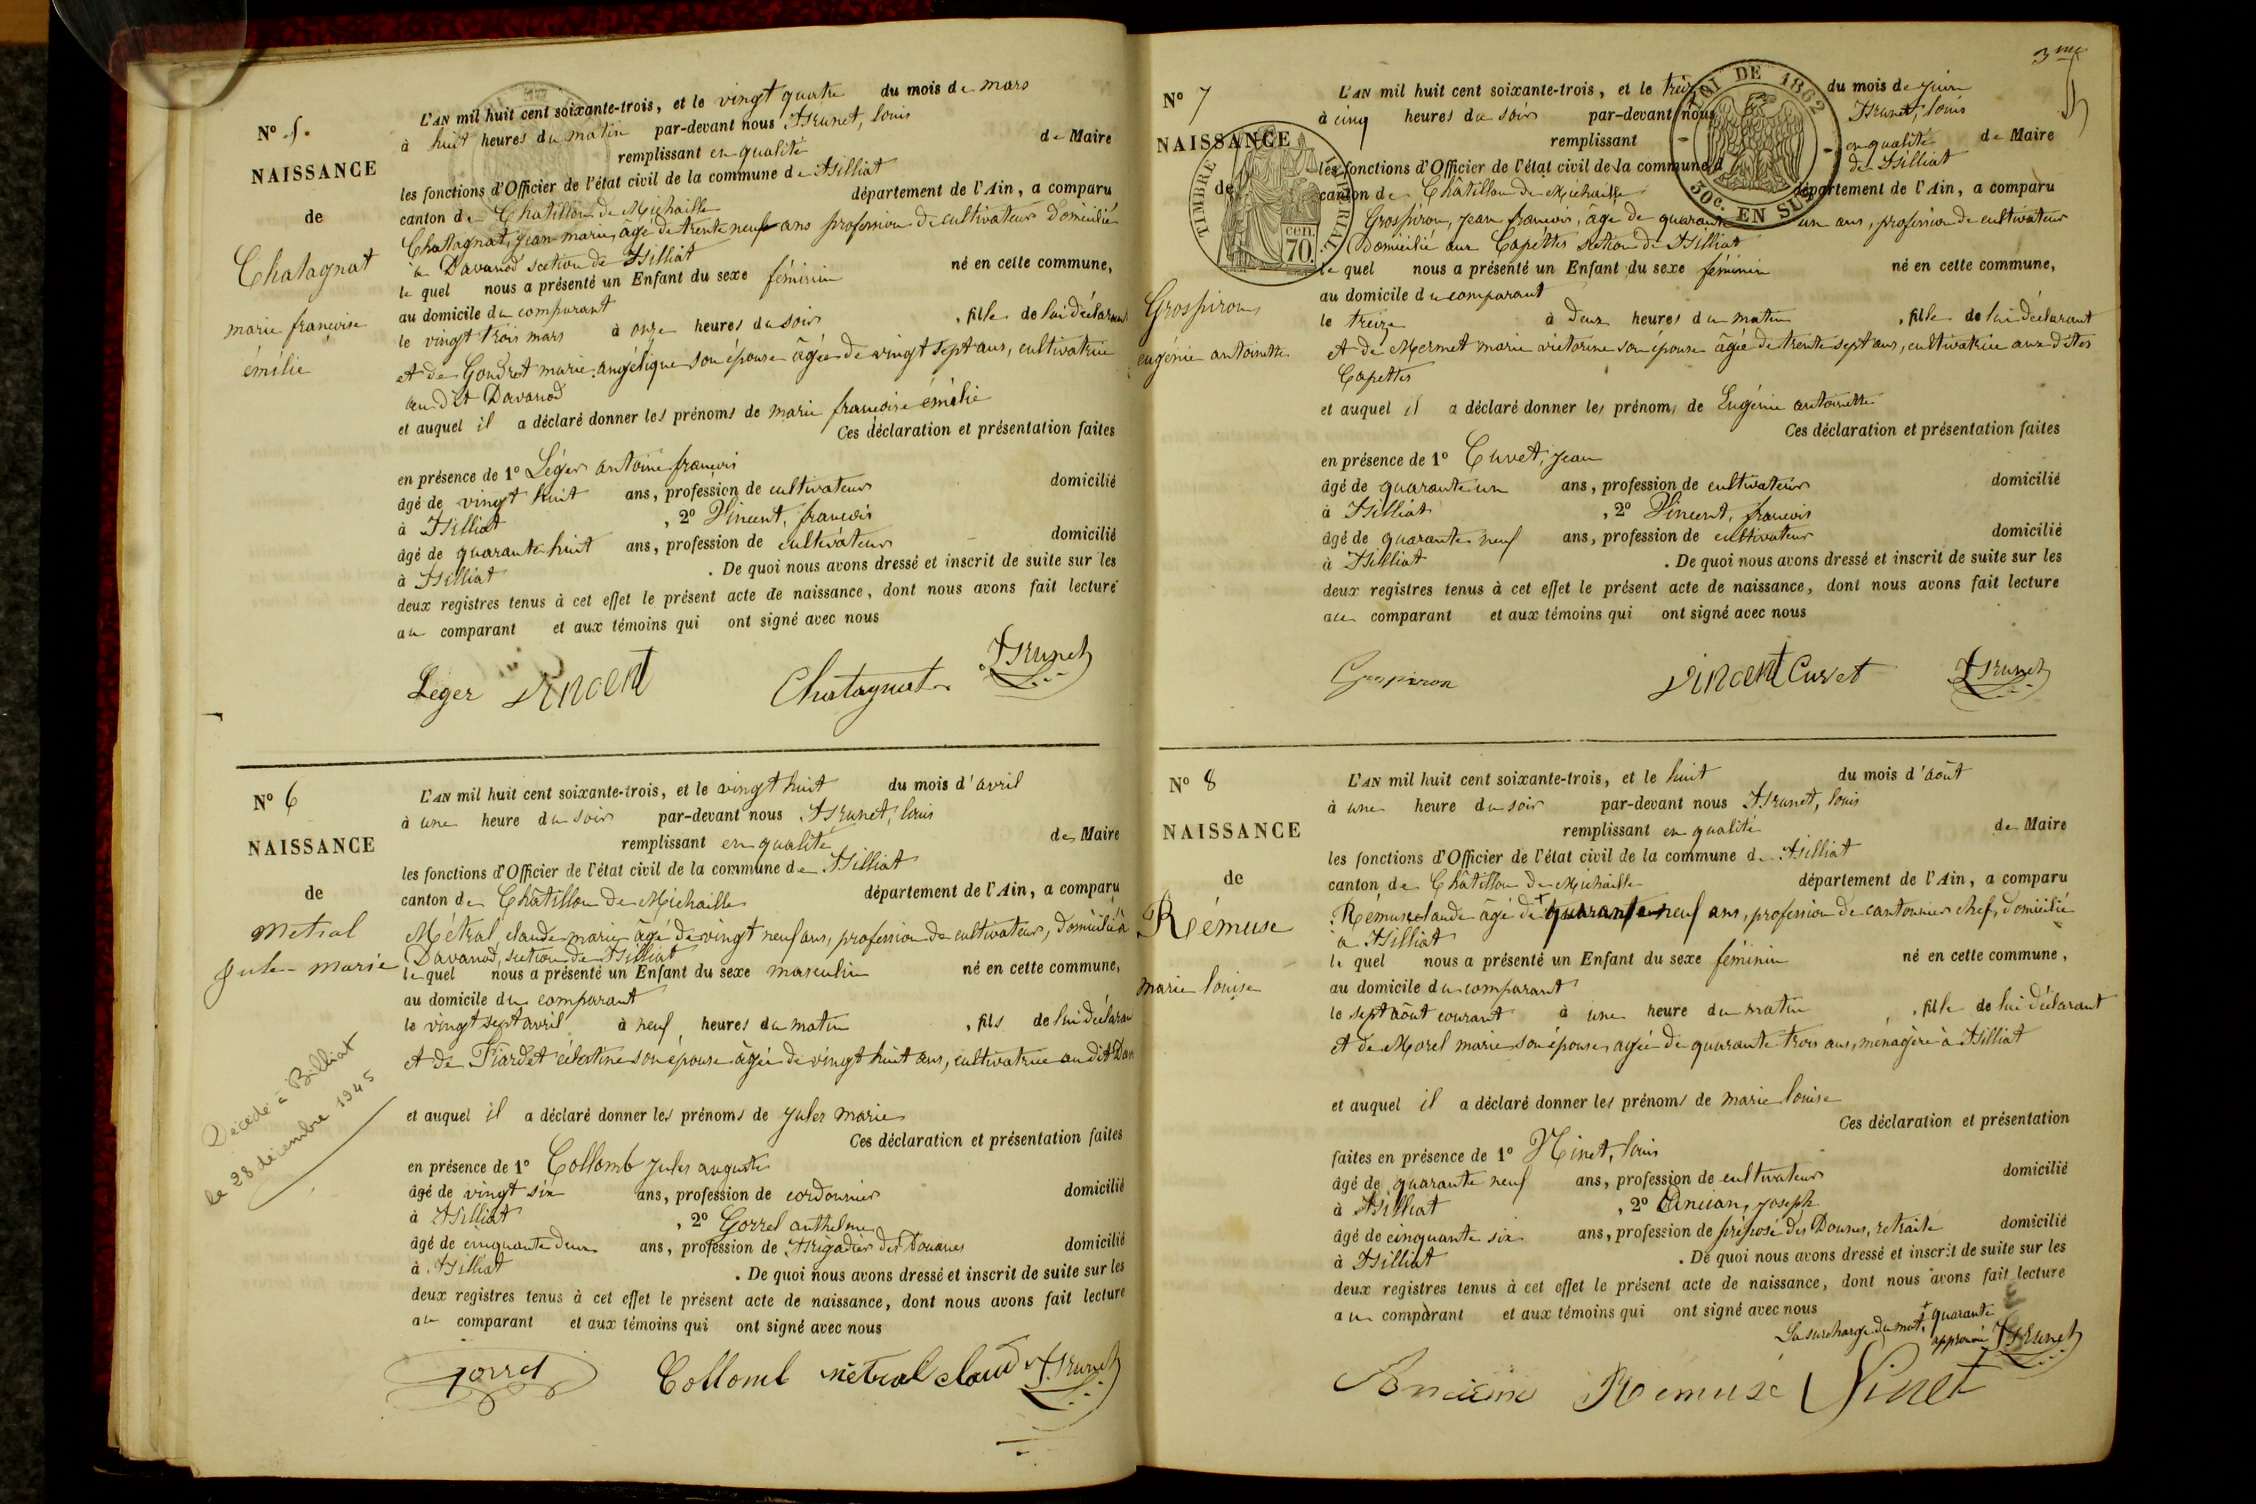 N° 5.
NAISSANCE
de
Chatagnat
marie françoise
émilie
L'AN mil huit cent soixante-trois, et le vingt quatre du mois de mars
à huit heures du matin par-devant nous Brunet, louis
remplissant en qualité de Maire
les fonctions d'Officier de l'état civil de la commune de Billiat
canton de Chatillon de Michaille département de l'Ain, a comparu
Chatagnat, jean marie, âgé de trente neuf ans profession de cultivateur domicilié
à Davanod section de Billiat
le quel nous a présenté un Enfant du sexe féminin né en cette commune,
au domicile du comparant
le vingt trois mars à onze heures du soir, fille de lui déclarant
et de Goudret marie angélique son épouse âgée de vingt sept ans, cultivatrice
au dit Davanod
et auquel il a déclaré donner les prénoms de marie françoise émélie
Ces déclaration et présentation faites
en présence de 1° Léger antoine françois
âgé de vingt huit ans, profession de cultivateur domicilié
à Billiat, 2° Vincent, françois
âgé de quarante huit ans, profession de cultivateur domicilié
à Billiat. De quoi nous avons dressé et inscrit de suite sur les
deux registres tenus à cet effet le présent acte de naissance, dont nous avons fait lecture
au comparant et aux témoins qui ont signé avec nous
Léger Vincent Chatagnat Brunet
N° 6
NAISSANCE
de
Metral
Jule-Marie
Décédé à Billiat
le 28 décembre 1945
L'AN mil huit cent soixante-trois, et le vingt huit du mois d'avril
à une heure du soir par-devant nous Brunet, louis
remplissant en qualité de Maire
les fonctions d'Officier de l'état civil de la commune de Billiat
canton de Châtillon de Michaille département de l'Ain, a comparu
Métral, claude marie âgé de vingt neuf ans, profession de cultivateur, domicilié à
Davanod, section de Billiat
le quel nous a présenté un Enfant du sexe masculin né en cette commune,
au domicile du comparant
le vingt sept avril à neuf heures du matin, fils de lui déclaran
et de Fiardet célestine son épouse âgée de vingt huit ans, cultivatrice au dit Dav
et auquel il a déclaré donner les prénoms de jules marie
Ces déclaration et présentation faites
en présence de 1° Collomb jules auguste
âgé de vingt six ans, profession de cordonnier domicilié
à Billiat, 2° Gorrel anthelme
âgé de cinquante deux ans, profession de Brigadier des Douanes domicilié
à Billiat. De quoi nous avons dressé et inscrit de suite sur les
deux registres tenus à cet effet le présent acte de naissance, dont nous avons fait lecture
au comparant et aux témoins qui ont signé avec nous
gorrel Collomb métral claud Brunet
3me
N° 7
NAISSANCE
de
Grospiron
eugénie antoinette
TIMBRE IMPÉRIAL
cen.
70.
LOI DE 1862
50c. EN SUS
L'AN mil huit cent soixante-trois, et le treize du mois de juin
à cinq heures du soir par-devant nous Brunet, louis
remplissant en qualité de Maire
les fonctions d'Officier de l'état civil de la commune d de Billiat
canton de Châtillon de Michaille département de l'Ain, a comparu
Grospiron, jean françois, âgé de quarante un ans, profession de cultivateur
Domicilié aux Capettes section de Billiat
le quel nous a présenté un Enfant du sexe féminin né en cette commune,
au domicile du comparant
le treize à deux heures du matin, fille de lui déclarant
et de Mermet marie victorine son épouse âgée de trente sept ans, cultivatrice aux dites
Capettes
et auquel il a déclaré donner les prénoms de Eugénie antoinette
Ces déclaration et présentation faites
en présence de 1° Curet, jean
âgé de quarante un ans, profession de cultivateur domicilié
à Billiat, 2° Vincent, françois
âgé de quarante neuf ans, profession de cultivateur domicilié
à Billiat. De quoi nous avons dressé et inscrit de suite sur les
deux registres tenus à cet effet le présent acte de naissance, dont nous avons fait lecture
au comparant et aux témoins qui ont signé avec nous
Grospiron Vincent Curet Brunet
N° 8
NAISSANCE
de
Rémuse
marie louise
L'AN mil huit cent soixante-trois, et le huit du mois d'août
à une heure du soir par-devant nous Brunet, louis
remplissant en qualité de Maire
les fonctions d'Officier de l'état civil de la commune de Billiat
canton de Châtillon de Michaille département de l'Ain, a comparu
Rémuse claude âgé de + quarante neuf ans, profession de cantonnier chef, domicilié
à Billiat
le quel nous a présenté un Enfant du sexe féminin né en cette commune,
au domicile du comparant
le sept août courant à une heure du matin, fille de lui déclarant
et de Morel marie son épouse, agée de quarante trois ans, ménagère à Billiat
et auquel il a déclaré donner les prénoms de marie louise
Ces déclaration et présentation
faites en présence de 1° Ninet, louis
âgé de quarante neuf ans, profession de cultivateur domicilié
à Billiat, 2° Ancian, joseph
âgé de cinquante six ans, profession de préposé des Douanes, retraité domicilié
à Billiat. De quoi nous avons dressé et inscrit de suite sur les
deux registres tenus à cet effet le présent acte de naissance, dont nous avons fait lecture
au comparant et aux témoins qui ont signé avec nous
La surcharge du mot + quarante
approuvé Brunet
Ancian Rémuse Ninet